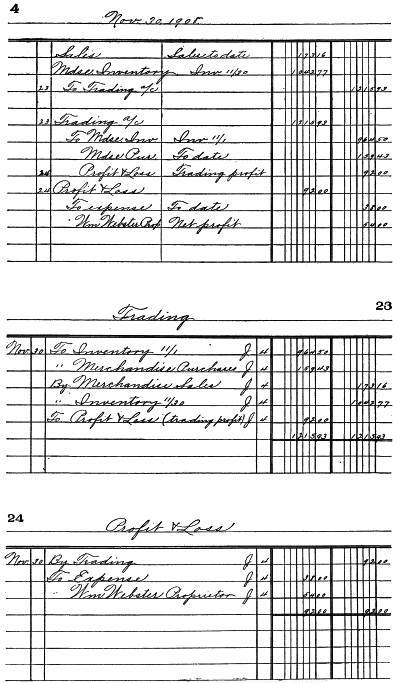 4
Nov. 30, 1908
Sales Sales to date 173 16
Mdse. Inventory Inv 11/30 1042 77
23 To Trading a/c 1215 93
23 Trading a/c 1215 93
To Mdse. Inv Inv 11/1 964 50
Mdse Pur. To date 159 43
24 Profit & Loss Trading profit 92 00
24 Profit & Loss 92 00
To expense To date 38 00
" Wm Webster Prop Net profit 54 00
23
Trading
Nov. 30 To Inventory 11/1 J 4 964 50
" Merchandise Purchases J 4 159 43
By Merchandise Sales J 4 173 16
" Inventory 11/30 J 4 1042 77
To Profit & Loss (trading profit) J 4 92 00
1215 93 1215 93
24
Profit & Loss
Nov. 30 By Trading J 4 92 00
To Expense J 4 38 00
" Wm Webster Proprietor J 4 54 00
92 00 92 00